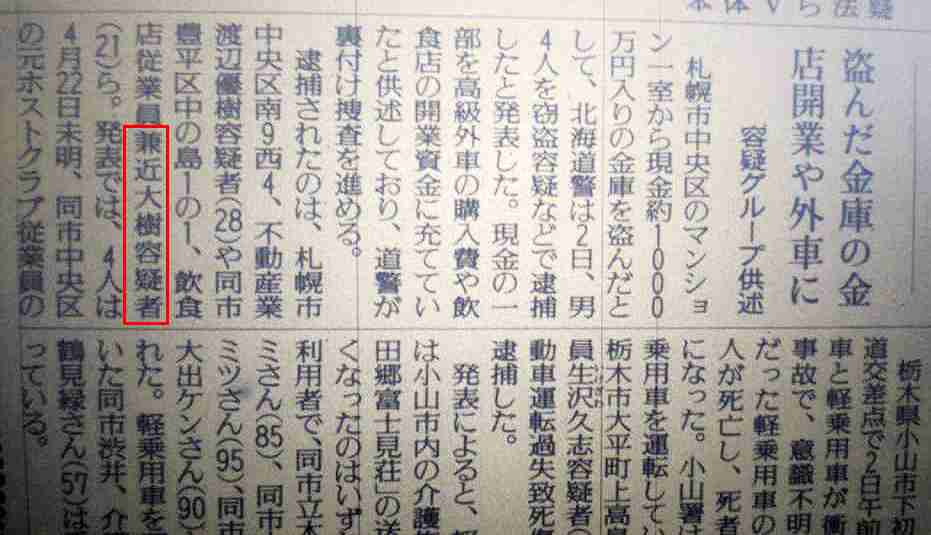 盗んだ金庫の金
店開業や外車に
容疑グループ供述
札幌市中央区のマンショ
ン一室から現金約1000
万円入りの金庫を盗んだと
して、北海道警は2日、男
4人を窃盗容疑などで逮捕
したと発表した。現金の一
部を高級外車の購入費や飲
食店の開業資金に充ててい
たと供述しており、道警が
裏付け捜査を進める。
逮捕されたのは、札幌市
中央区南9西4、不動産業
渡辺優樹容疑者(28)や同市
豊平区中の島1の1、飲食
店従業員兼近大樹容疑者
(21)ら。発表では、4人は
4月22日未明、同市中央区
の元ホストクラブ従業員の
栃木県小山市下初
道交差点で2日午前
車と軽乗用車が衝
事故で、意識不明
だった軽乗用車の
人が死亡し、死者
になった。小山署は
乗用車を運転してい
栃木市大平町上高島
員生沢久志容疑者(
動車運転過失致死傷
逮捕した。
発表によると、
は小山市内の介護施
田郷富士見荘」の送
くなったのはいず
利用者で、同市立木
ミさん(85)、同市
ミツさん(95)、同市
大出ケンさん(90)
れた。軽乗用車を
いた同市渋井、介
鶴見緑さん(57)は
っている。